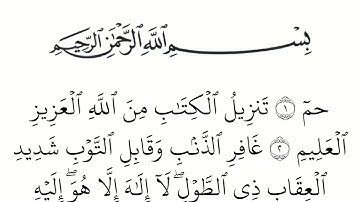 بِسْمِ ٱللَّهِ ٱلرَّحْمَٰنِ ٱلرَّحِيمِ
حمٓ ١ تَنزِيلُ ٱلْكِتَٰبِ مِنَ ٱللَّهِ ٱلْعَزِيزِ
ٱلْعَلِيمِ ٢ غَافِرِ ٱلذَّنۢبِ وَقَابِلِ ٱلتَّوْبِ شَدِيدِ
ٱلْعِقَابِ ذِى ٱلطَّوْلِ ۖ لَآ إِلَٰهَ إِلَّا هُوَ ۖ إِلَيْهِ